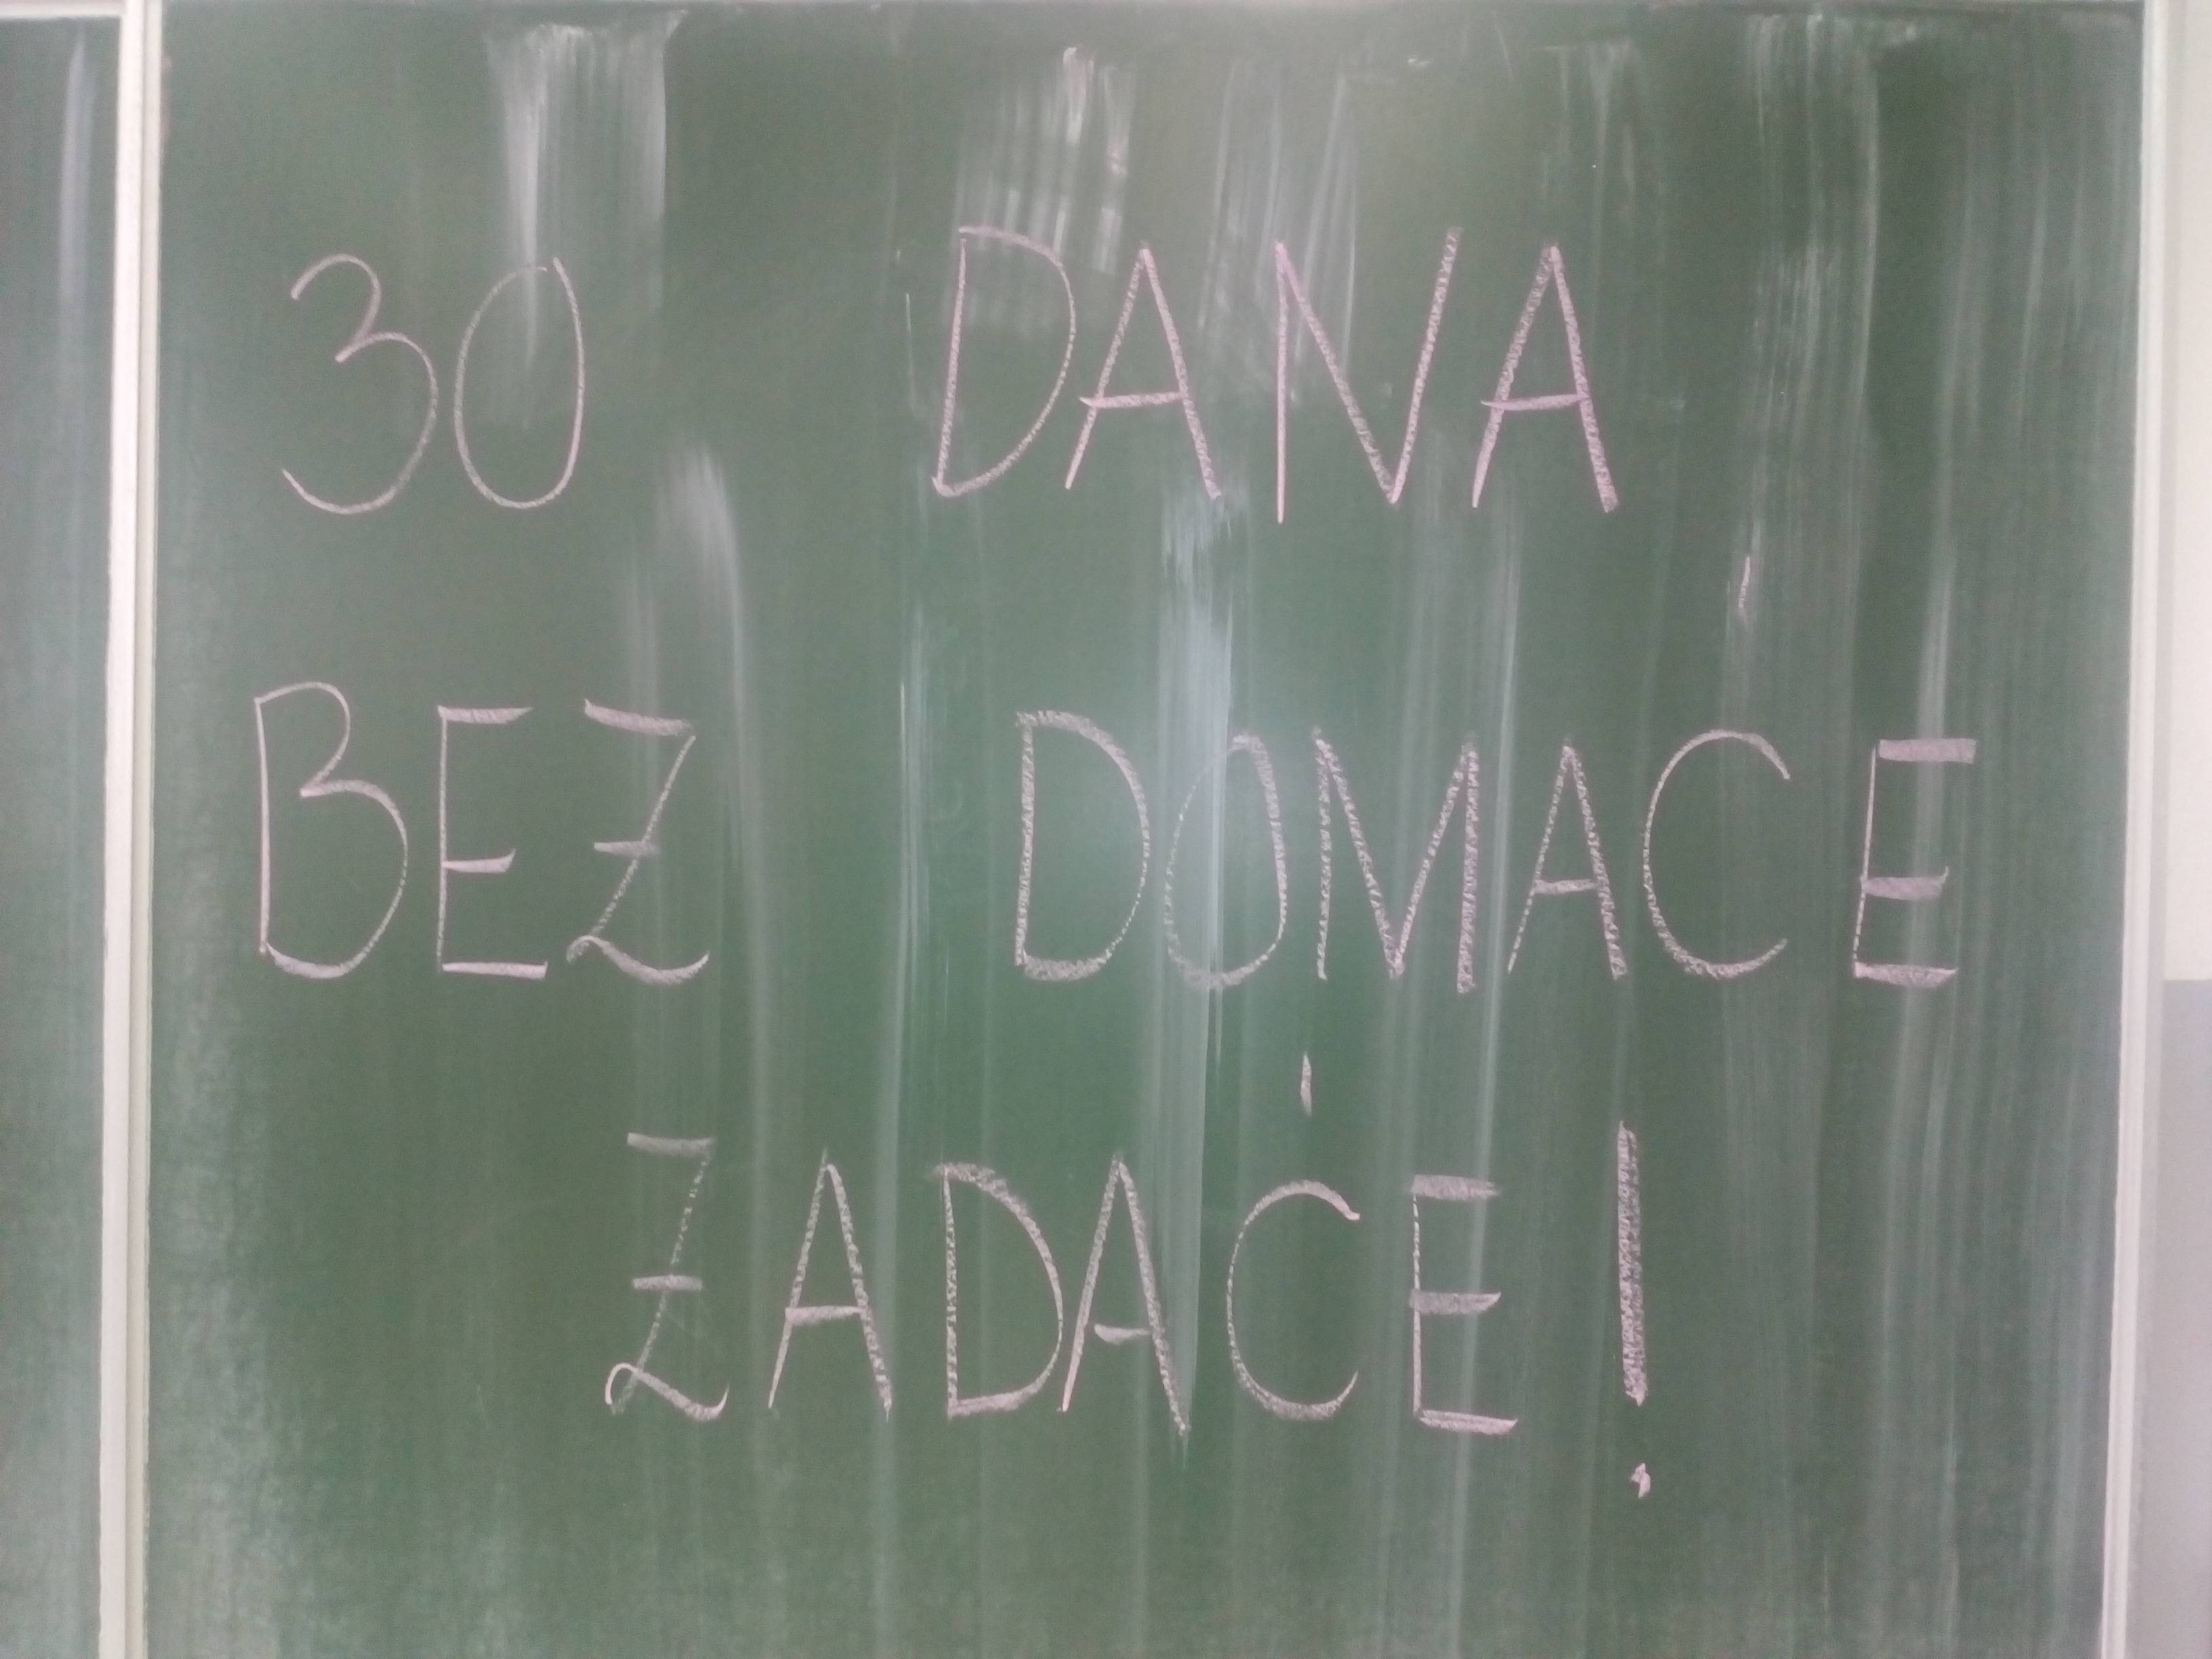 30 DANA
BEZ DOMAĆE
ZADAĆE!